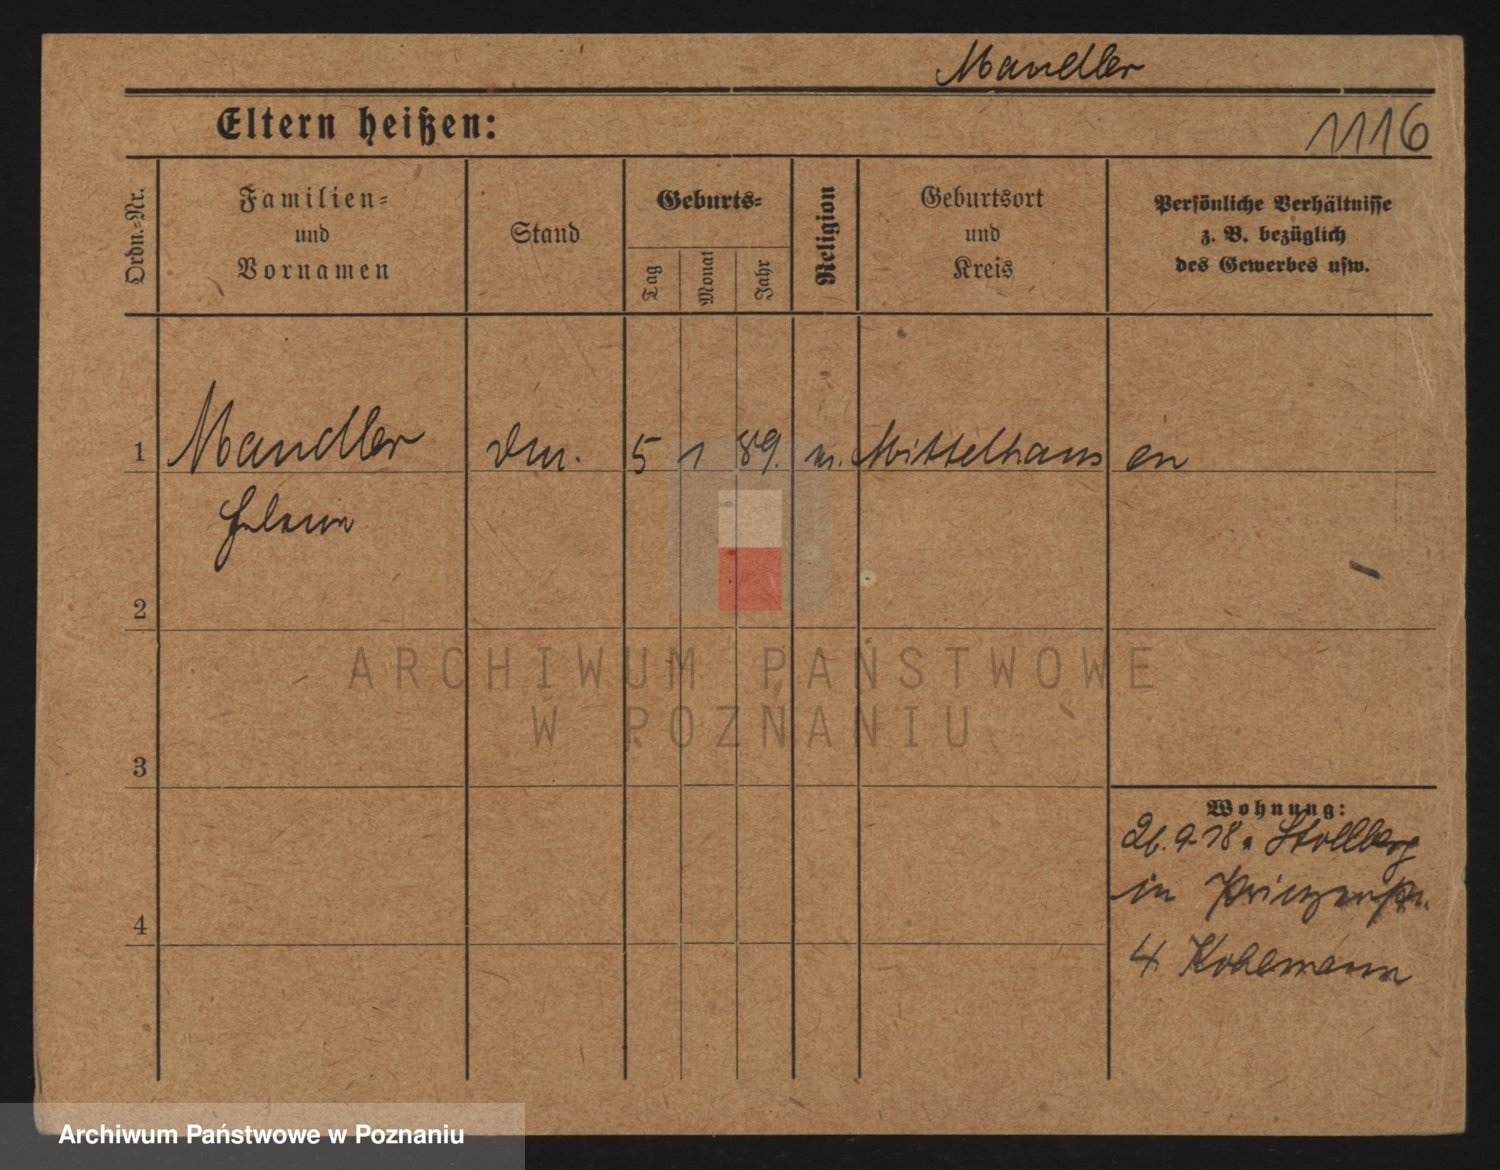 Mandler
Eltern heißen:
1116
Ordn.-Nr.
Familien-
und
Vornamen
Stand
Geburts-
Tag
Monat
Jahr
Religion
Geburtsort
und
Kreis
Persönliche Verhältnisse
z. B. bezüglich
des Gewerbes usw.
1 Mandler 5 1 89. Mittelhausen
2
3
Wohnung:
Stollberg
in
4
4 Kohlmann
ARCHIWUM PAŃSTWOWE
W POZNANIU
Archiwum Państwowe w Poznaniu